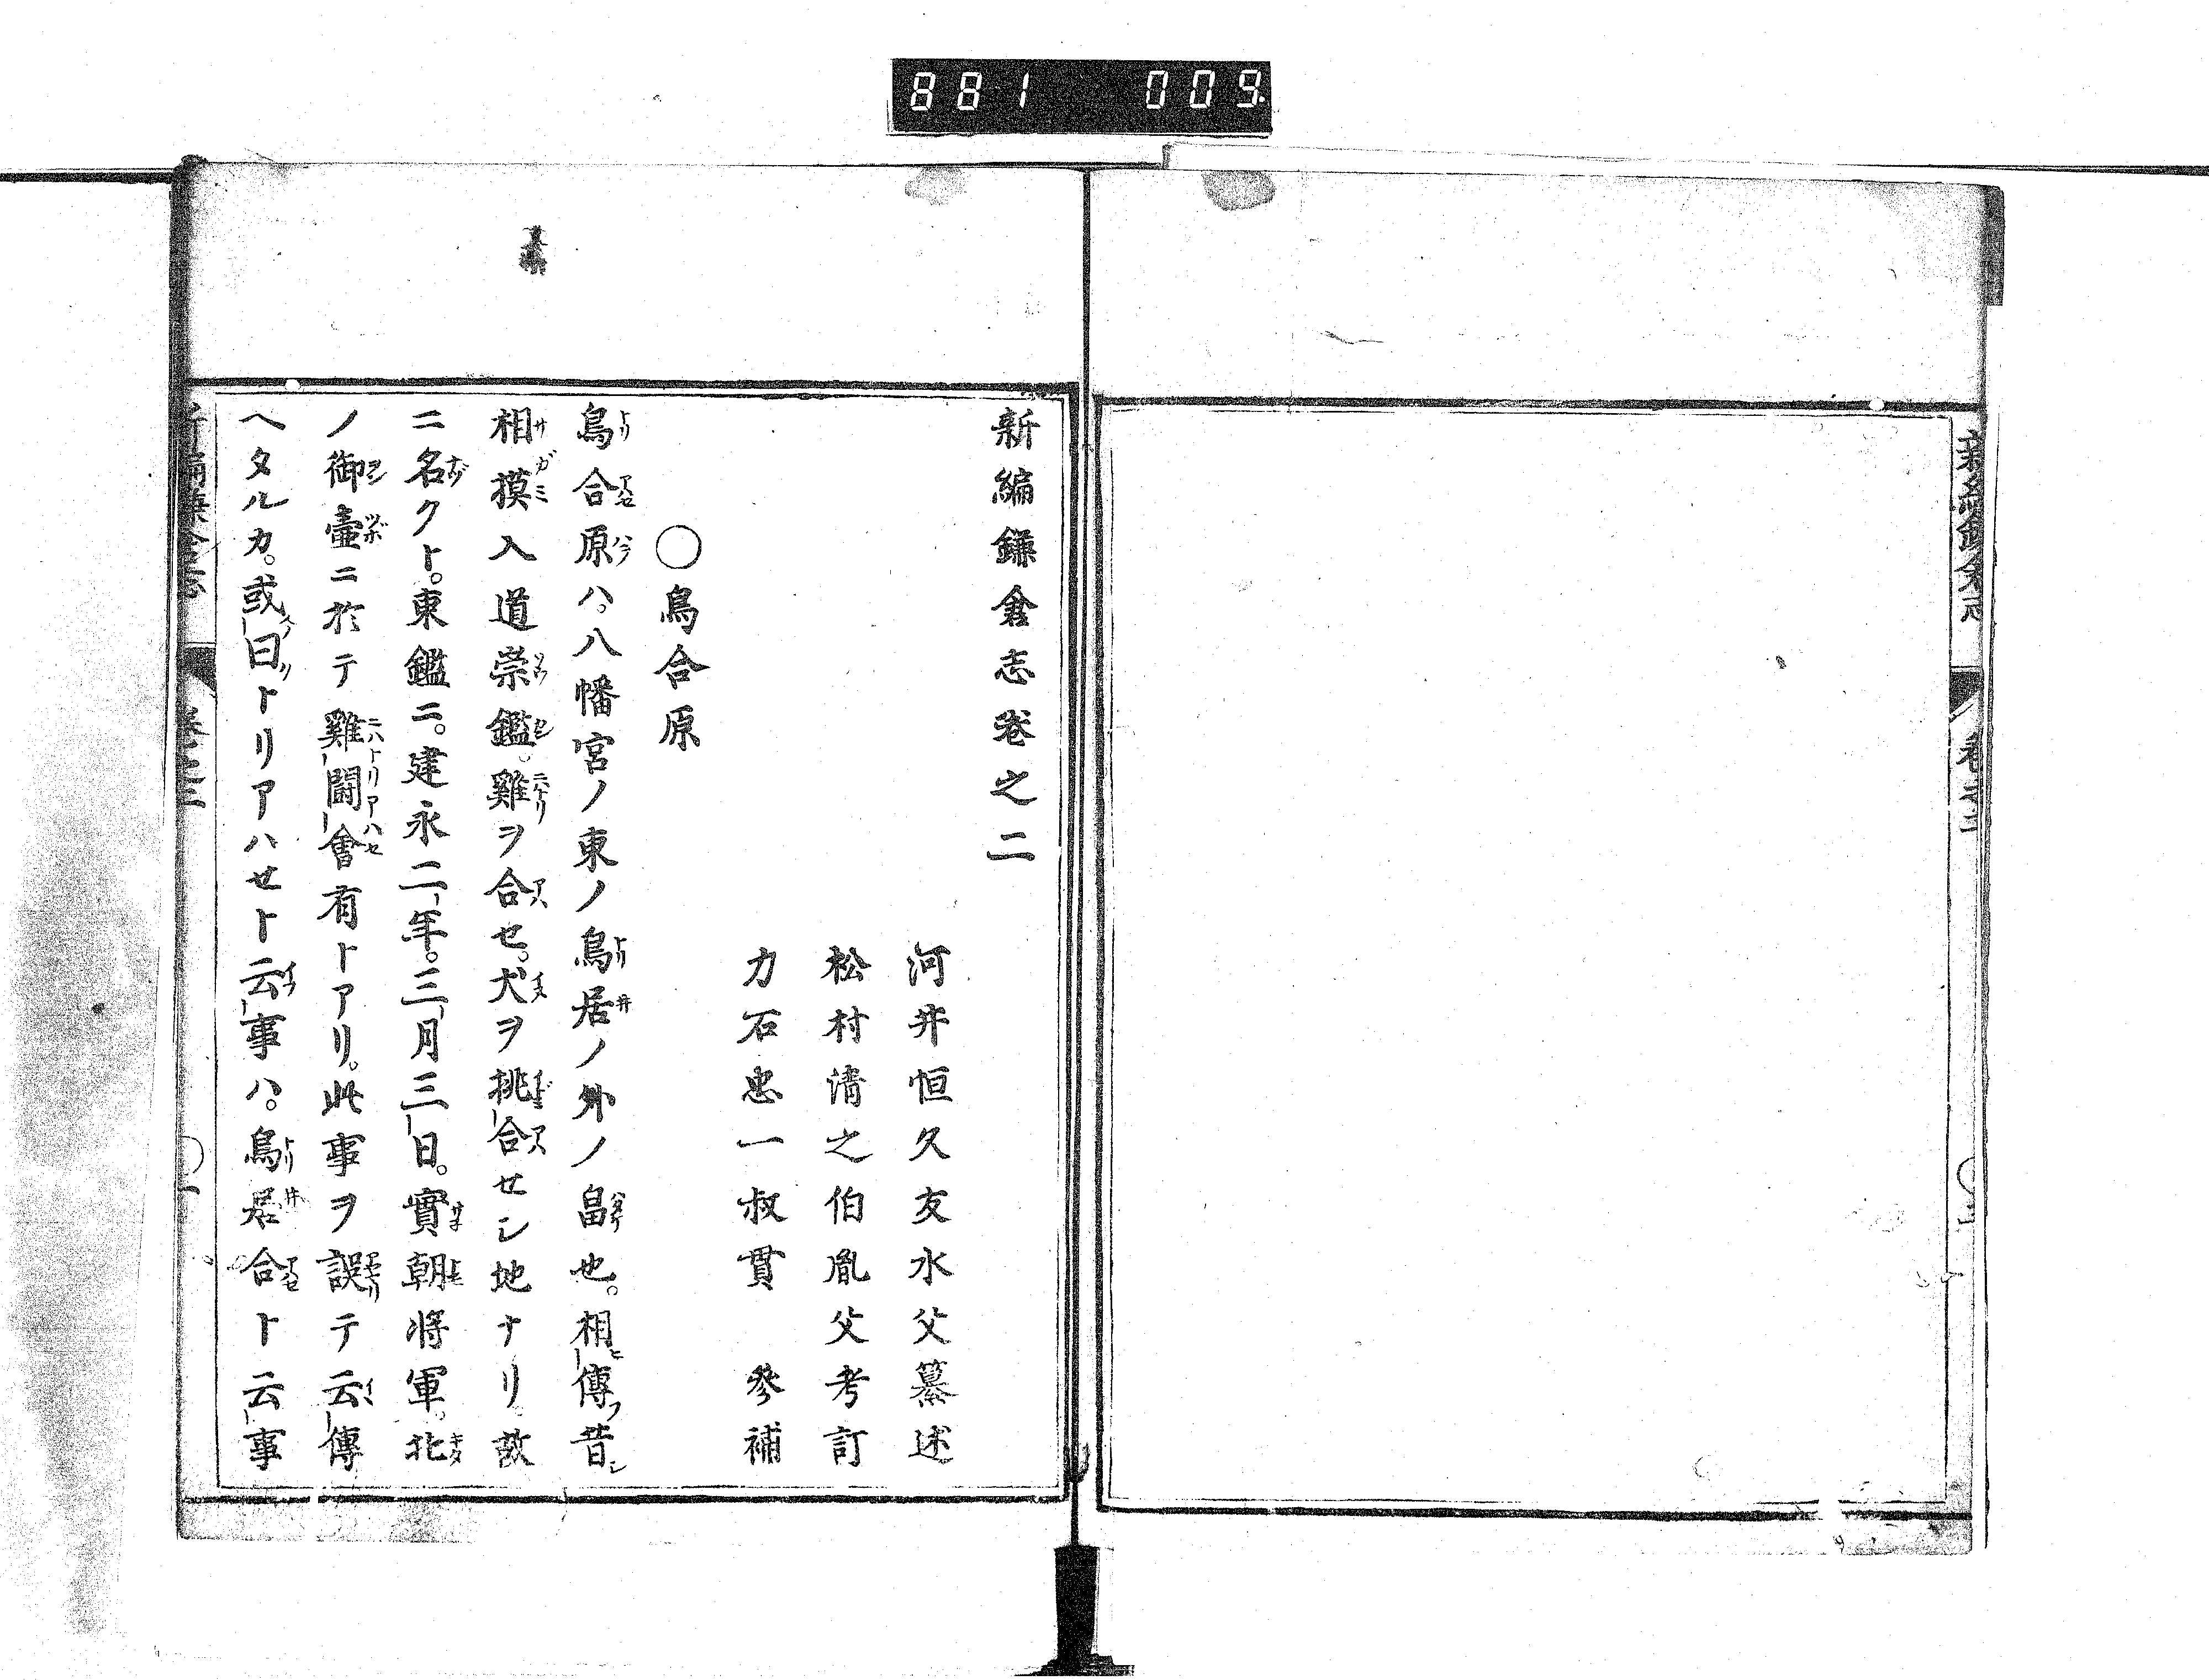 881 009
新編鎌倉志卷之二
河井恒久友水父纂述
松村清之伯胤父考訂
力石忠一叔貫 參補
○鳥合原
鳥合原ハ。八幡宮ノ東ノ鳥居ノ外ノ畠也。相傳フ昔シ
相摸入道崇鑑。雞ヲ合セ。犬ヲ挑合セシ地ナリ。故
ニ名クト。東鑑ニ。建永二年。三月三日。實朝將軍。北
ノ御壷ニ於テ雞鬪會有トアリ。此事ヲ誤テ云傳
ヘタルカ。或曰トリアハセト云事ハ。鳥居合ト云事